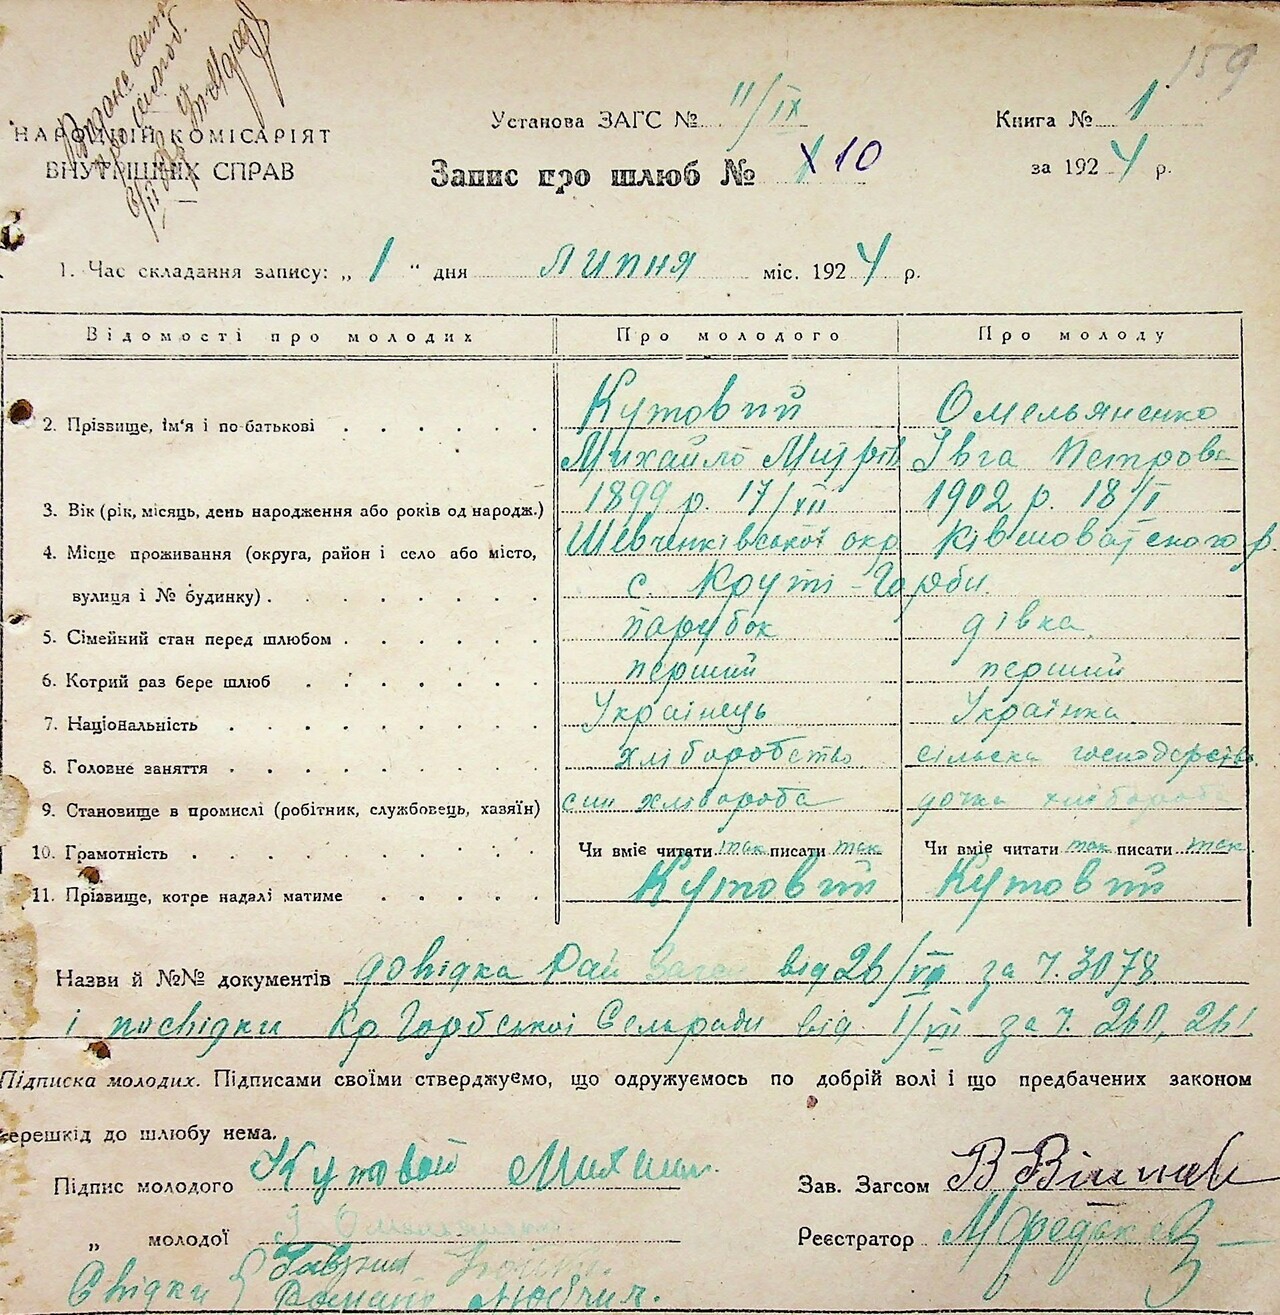 159
Видано
НАРОДНІЙ КОМІСАРІЯТ
ВНУТРІШНІХ СПРАВ
Установа ЗАГС № 11/IX
Книга № 1
Запис про шлюб № 10
за 1924 р.
1. Час складання запису: „ 1 " дня липня міс. 1924 р.
Відомості про молодих Про молодого Про молоду
2. Прізвище, ім'я і по-батькові . . . . . Кутовий Омельяненко
Михайло Івга Петрова
3. Вік (рік, місяць, день народження або років од народж.) 1899 р. 17/XII 1902 р. 18/I
4. Місце проживання (округа, район і село або місто, Шевченківської окр Ківшоватського р.
вулиця і № будинку) . с. Круті-Горби.
5. Сімейний стан перед шлюбом . парубок дівка
6. Котрий раз бере шлюб . перший перший
7. Національність . Українець Українка
8. Головне заняття . хліборобство сільска господарство
9. Становище в промислі (робітник, службовець, хазяїн) син хлібороба дочка хлібороба
10. Грамотність . Чи вміє читати так писати так Чи вміє читати так писати так
11. Прізвище, котре надалі матиме . Кутовий Кутовий
Назви й №№ документів довідка Рай Загса від 26/VI за Ч. 3078
і посвідки Кр Горбської Сельради від I/VII за Ч. 260, 261
Підписка молодих. Підписами своїми стверджуємо, що одружуємось по добрій волі і що предбачених законом
ерешкід до шлюбу нема.
Підпис молодого Кутовой
Зав. Загсом В
„ молодої
Реєстратор
Свідки